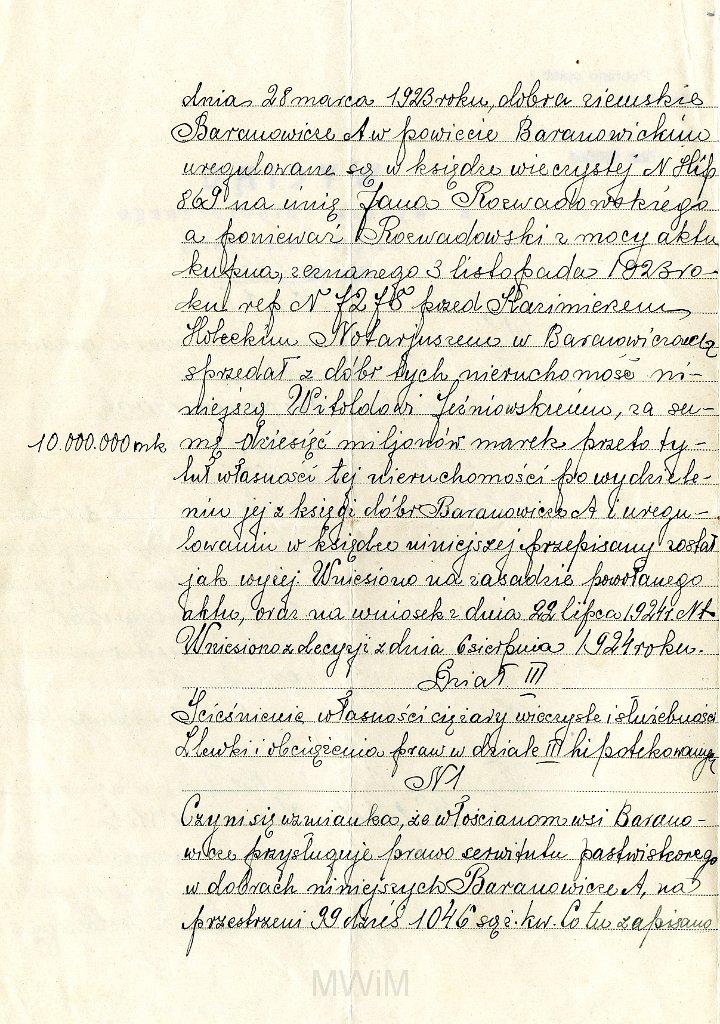 dnia 28 marca 1923 roku, dobra ziemskie
Baranowicze A w powiecie Baranowickim
uregulowane są w księdze wieczystej N Hip
869 na imię Jana Rozwadowskiego
a ponieważ Rozwadowski z mocy aktu
kupna, zeznanego 3 listopada 1923 ro-
ku rep N 7278 przed Kazimierzem
Holeckim Notarjuszem w Baranowiczach
sprzedał z dóbr tych nieruchomość ni-
niejszą Witoldowi Jeśniowskiemu, za su-
10.000.000 mk mę dziesięć miljonów marek przeto ty-
tuł własności tej nieruchomości po wydziele-
niu jej z księgi dóbr Baranowicze A i uregu-
lowaniu w księdze niniejszej przepisany został
jak wyżej. Wniesiono na zasadzie powołanego
aktu, oraz na wniosek z dnia 22 lipca 1924 r. N 1.
Wniesiono z decyzji z dnia 6 sierpnia 1924 roku.
Dział III
Ścieśnienie własności ciężary wieczyste i służebności
Zlewki i obciążenia praw w dziale III hipotekowanych
N 1
Czyni się wzmianka, że włościanom wsi Barano-
wicze przysługuje prawo serwitutu pastwiskowego
w dobrach niniejszych Baranowicze A, na
przestrzeni 99 dzieś 1046 sąż. kw. Co tu zapisano
MWiM